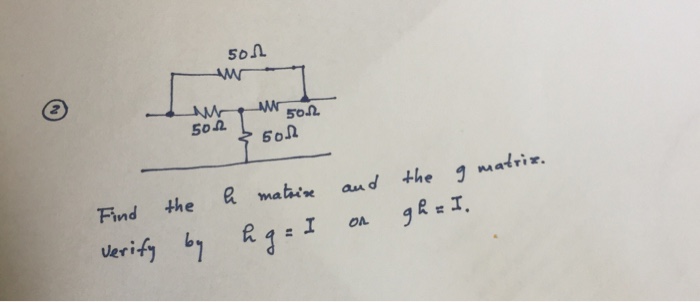 50Ω
②
50Ω
50Ω
50Ω
Find the h matrix and the g matrix.
Verify by hg = I or gh = I.